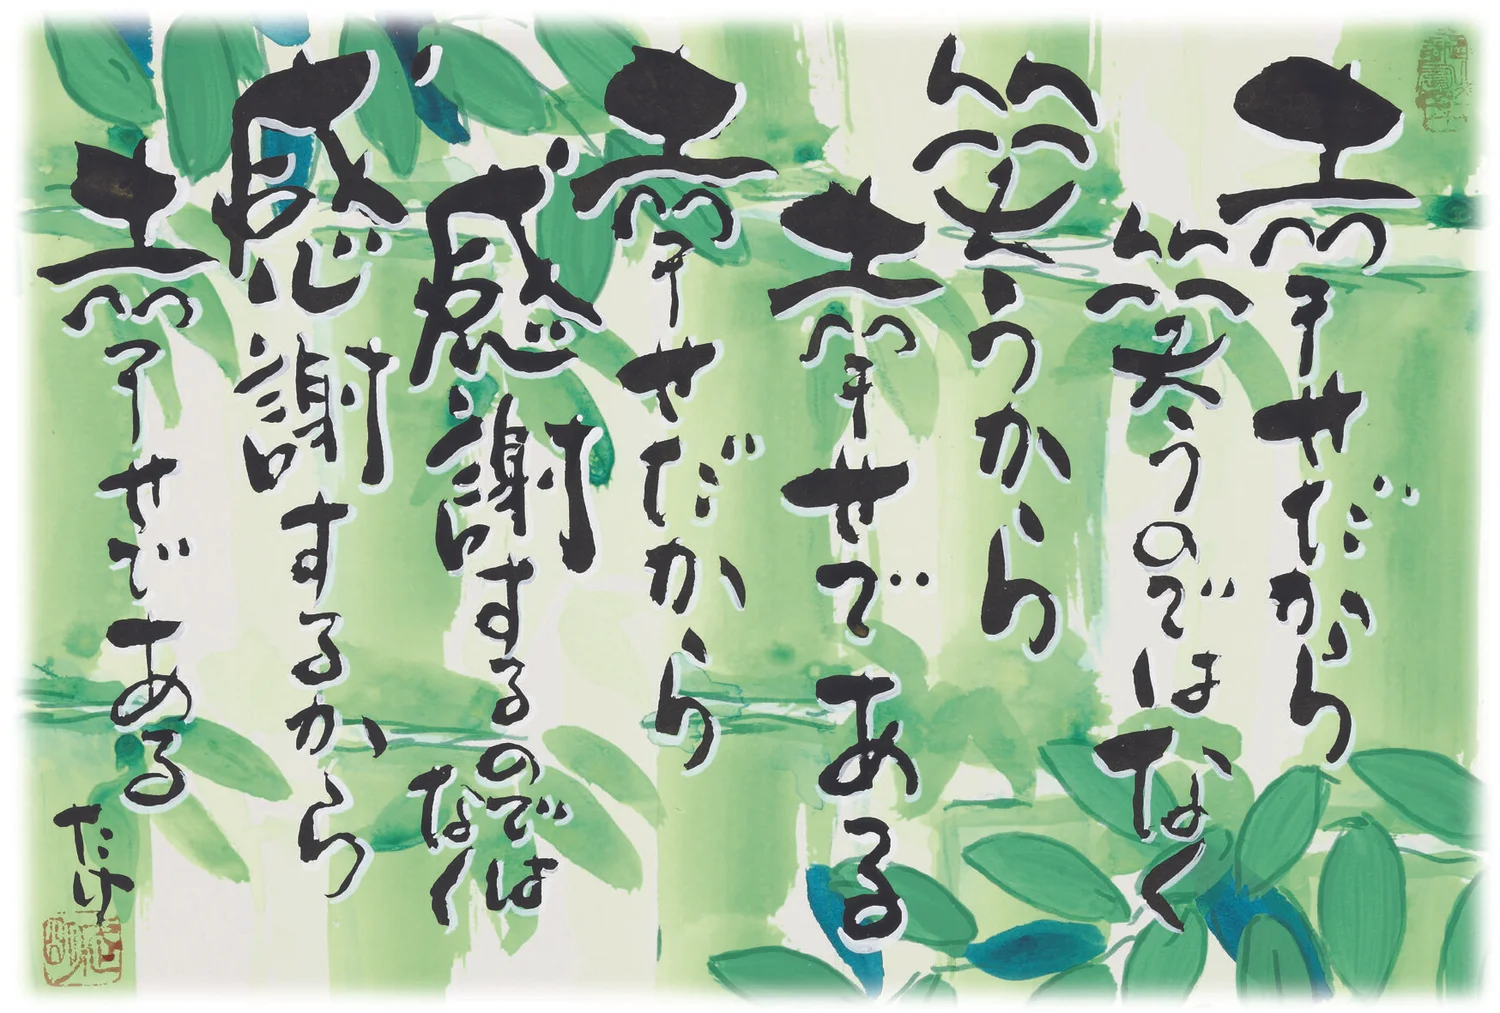 幸せだから
笑うのではなく
笑うから
幸せである
幸せだから
感謝するのではなく
感謝するから
幸せである
たけ